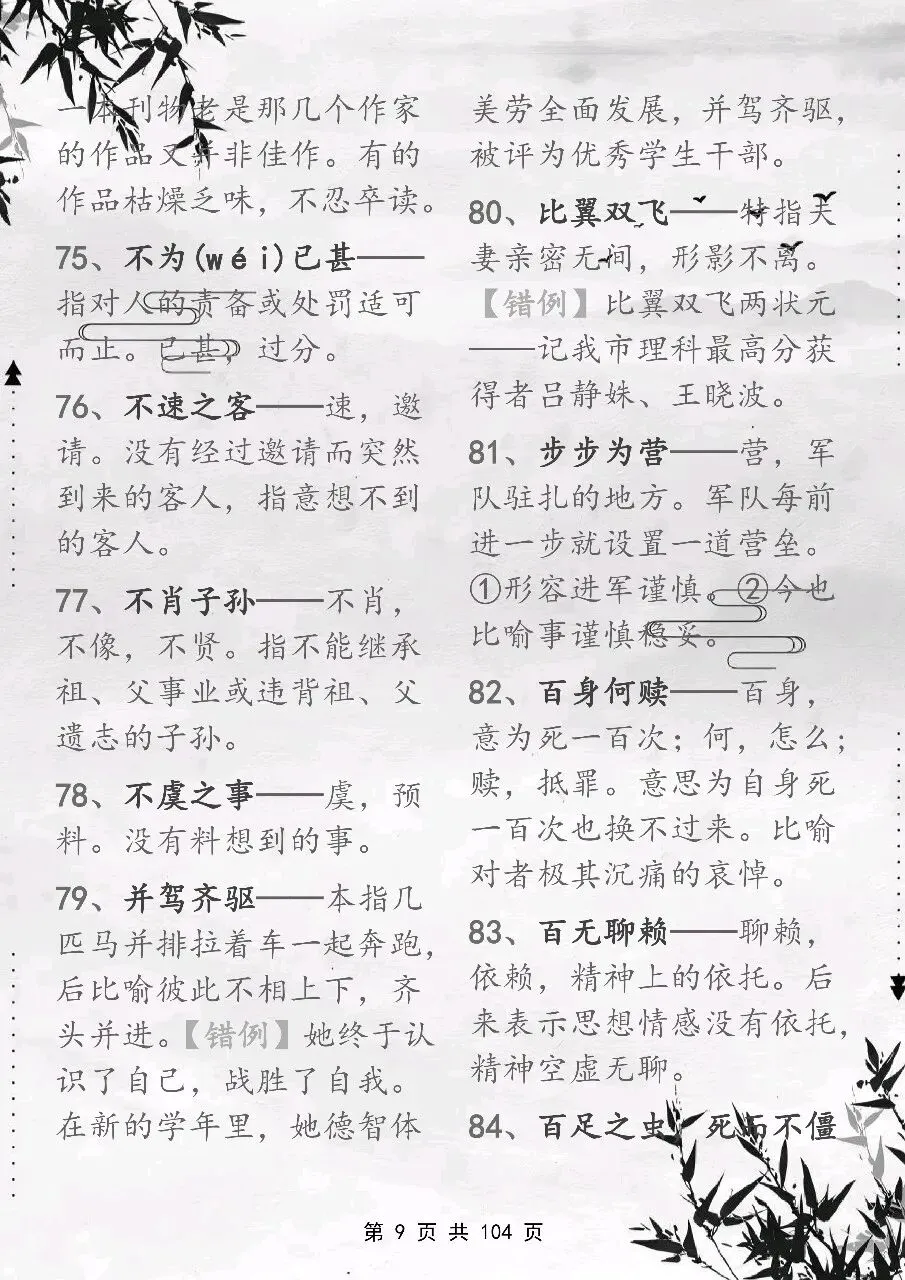 一本刊物老是那几个作家
的作品又并非佳作。有的
作品枯燥乏味，不忍卒读。
75、不为(wéi)已甚——
指对人的责备或处罚适可
而止。已甚，过分。
76、不速之客——速，邀
请。没有经过邀请而突然
到来的客人，指意想不到
的客人。
77、不肖子孙——不肖，
不像，不贤。指不能继承
祖、父事业或违背祖、父
遗志的子孙。
78、不虞之事——虞，预
料。没有料想到的事。
79、并驾齐驱——本指几
匹马并排拉着车一起奔跑，
后比喻彼此不相上下，齐
头并进。【错例】她终于认
识了自己，战胜了自我。
在新的学年里，她德智体
美劳全面发展，并驾齐驱，
被评为优秀学生干部。
80、比翼双飞——特指夫
妻亲密无间，形影不离。
【错例】比翼双飞两状元
——记我市理科最高分获
得者吕静姝、王晓波。
81、步步为营——营，军
队驻扎的地方。军队每前
进一步就设置一道营垒。
①形容进军谨慎。②今也
比喻事谨慎稳妥。
82、百身何赎——百身，
意为死一百次；何，怎么；
赎，抵罪。意思为自身死
一百次也换不过来。比喻
对者极其沉痛的哀悼。
83、百无聊赖——聊赖，
依赖，精神上的依托。后
来表示思想情感没有依托，
精神空虚无聊。
84、百足之虫，死而不僵
第 9 页 共 104 页